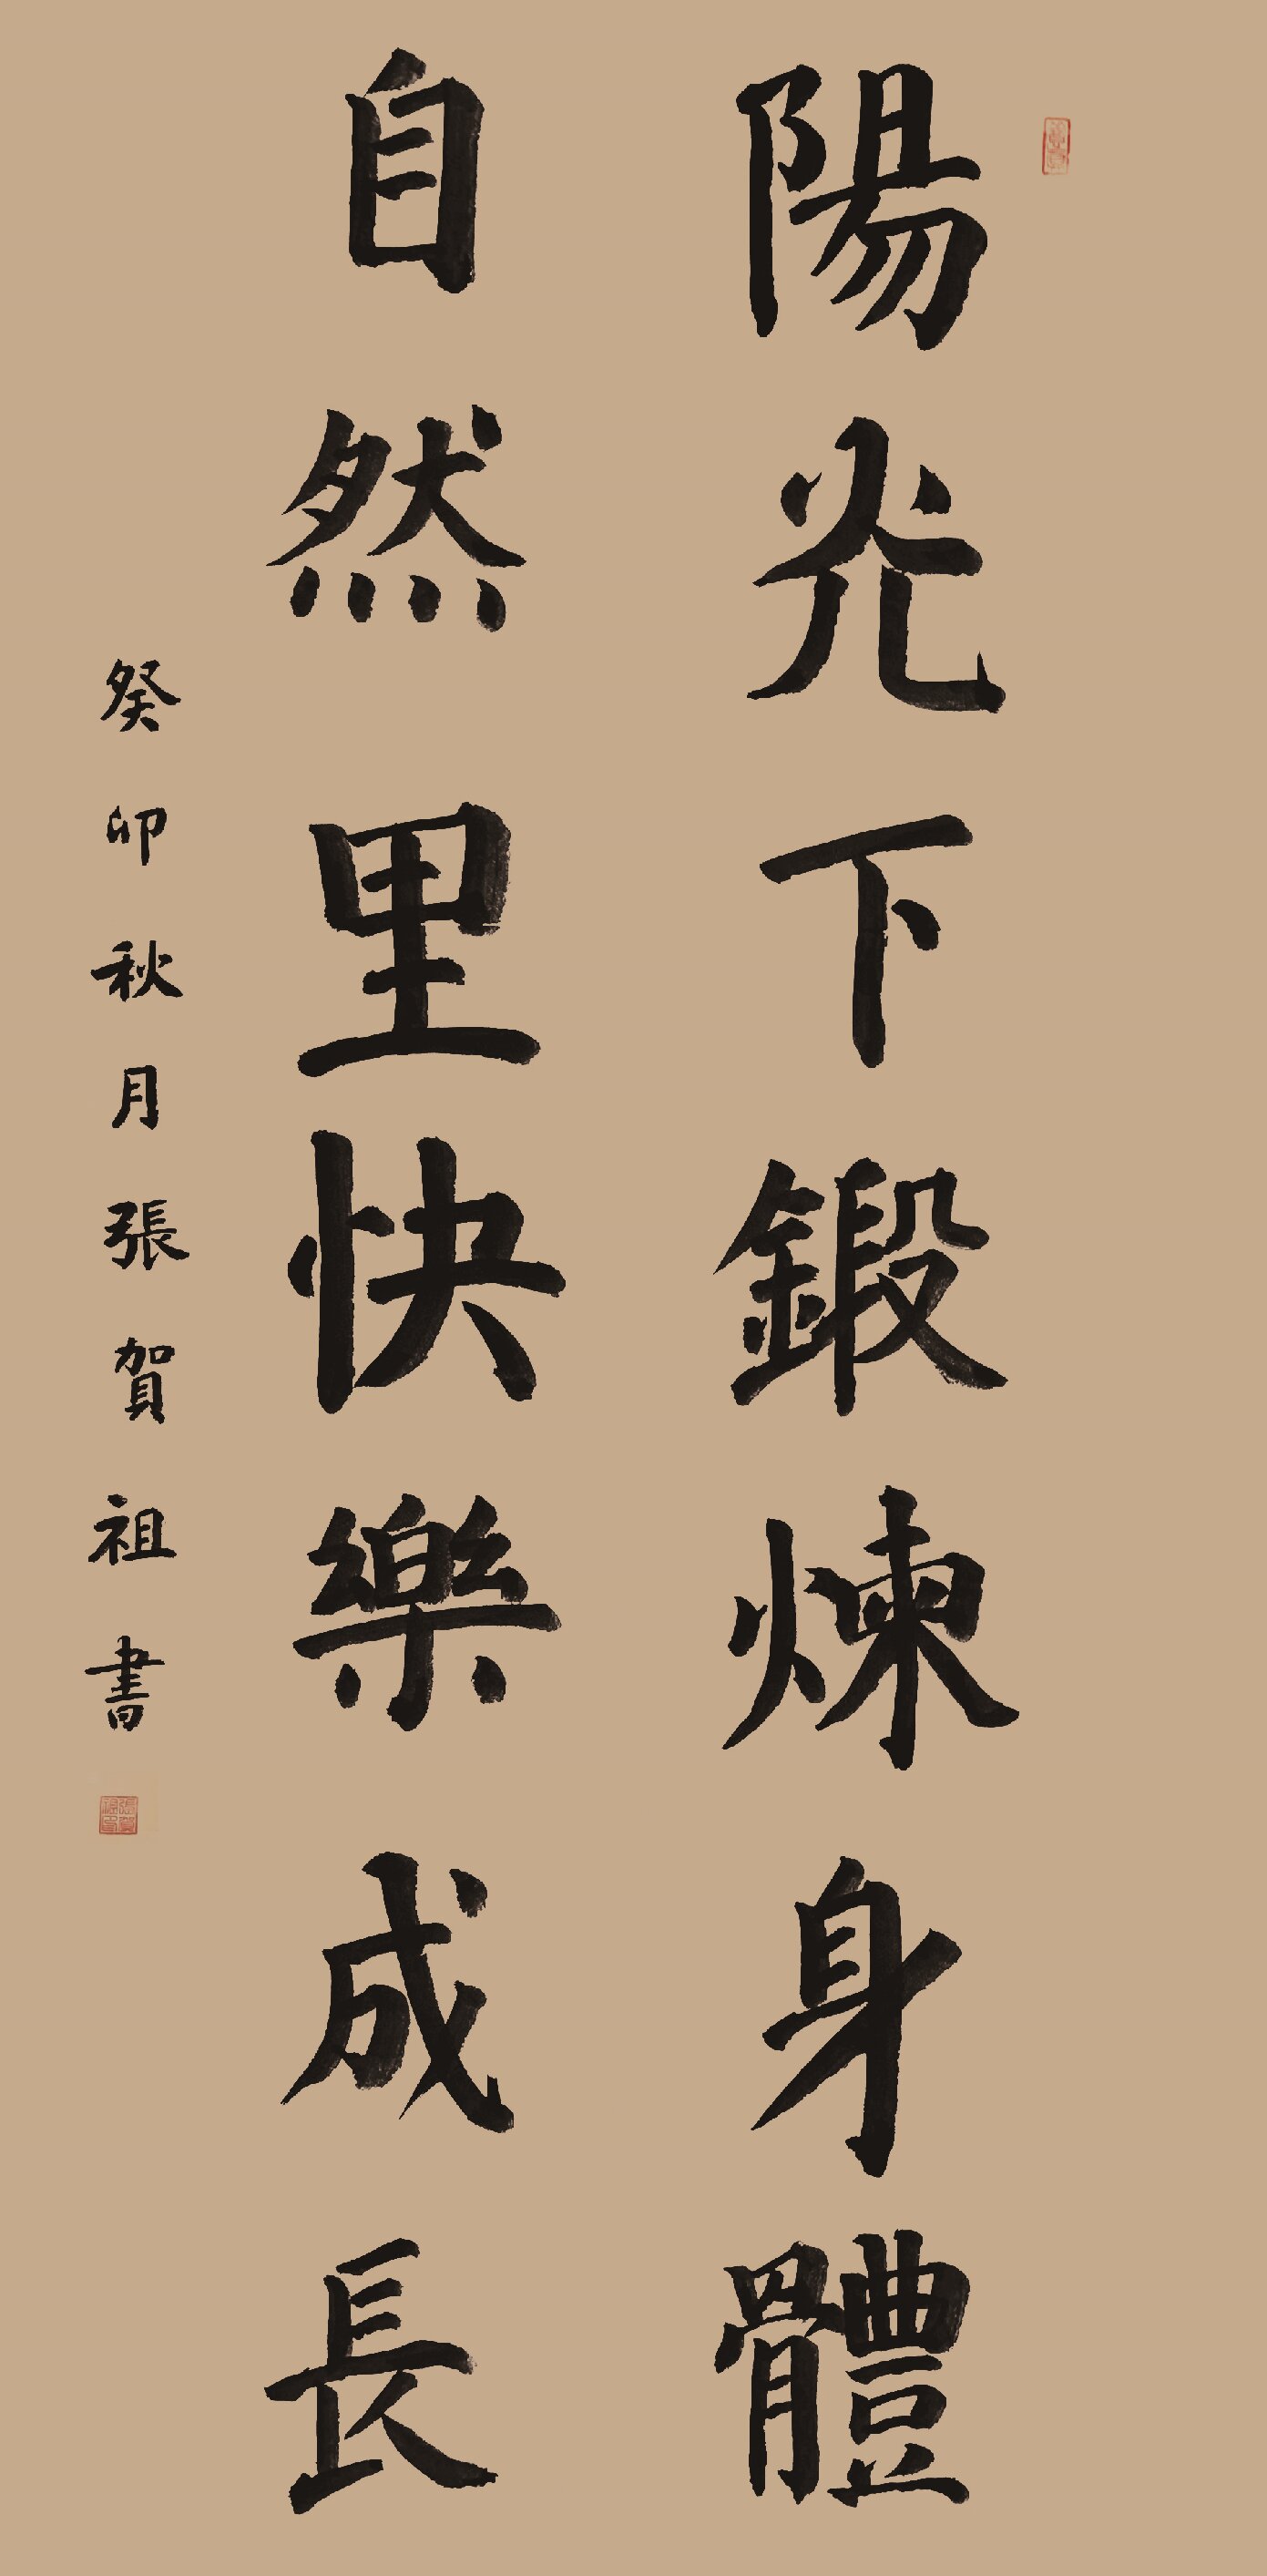 陽光下鍛煉身體
自然里快樂成長
癸卯秋月張賀祖書